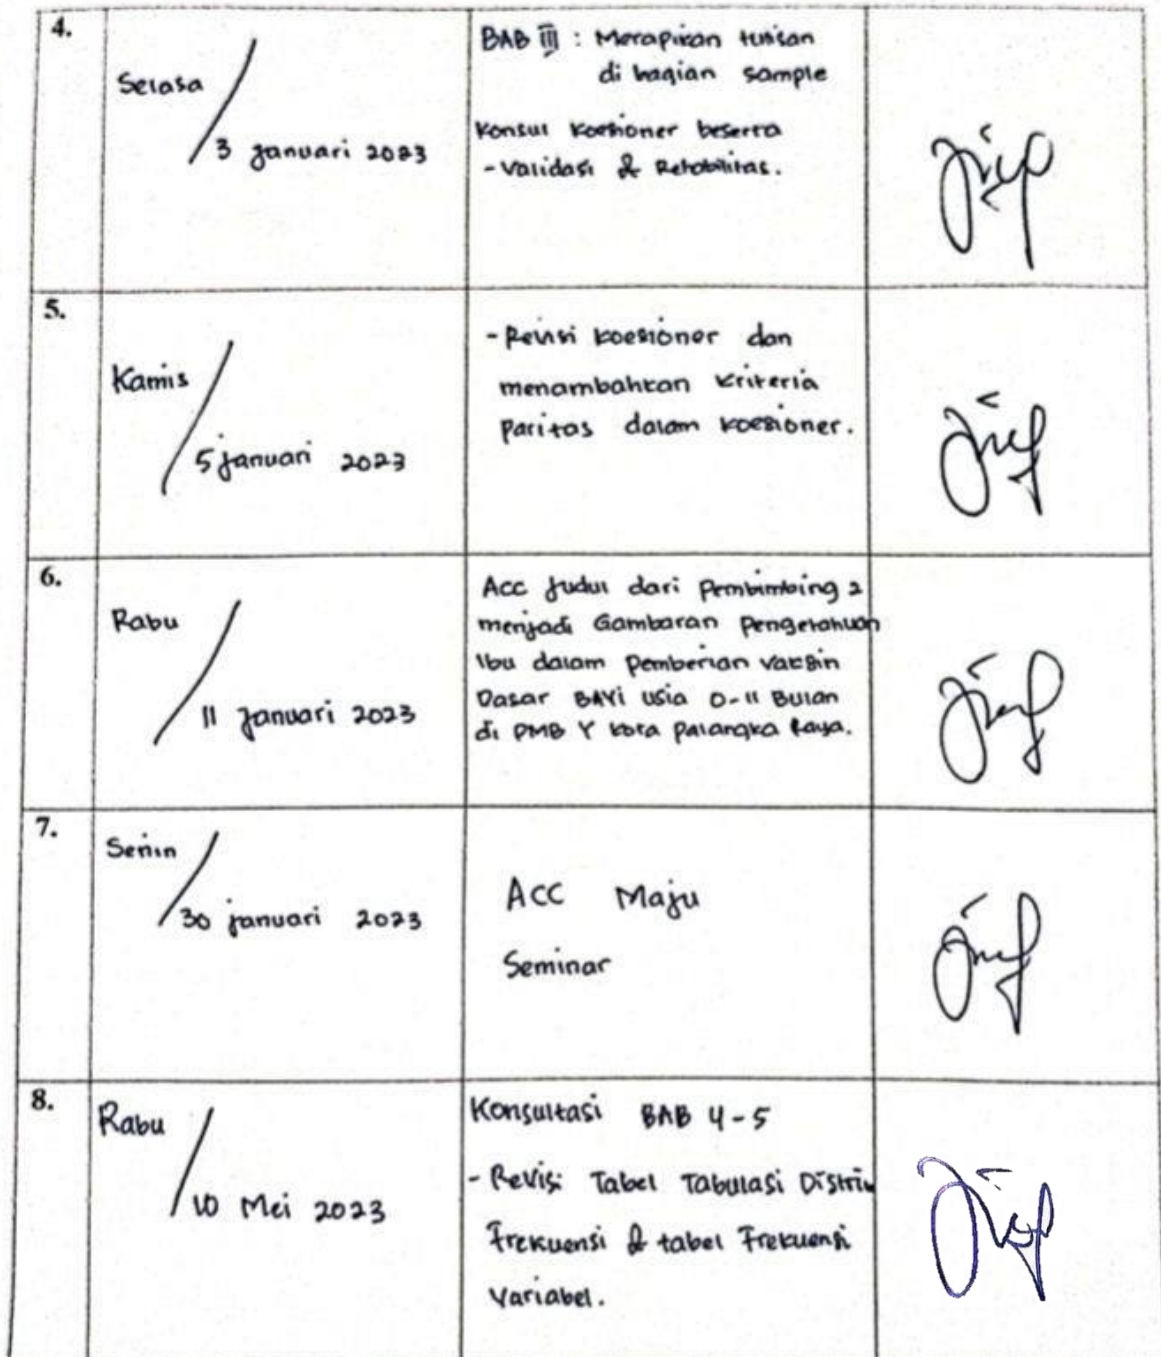 4.
Selasa
3 Januari 2023
BAB III : Merapikan tulisan
di bagian sample
Konsul Koesioner beserta
- Validasi & Reliabilitas.
5.
Kamis
5 januari 2023
- Revisi koesioner dan
menambahkan kriteria
Paritas dalam koesioner.
6.
Rabu
11 Januari 2023
Acc Judul dari Pembimbing 2
menjadi Gambaran Pengetahuan
Ibu dalam Pemberian Vaksin
Dasar BAYi usia 0-11 Bulan
di PMB Y kota Palangka Raya.
7.
Senin
30 januari 2023
Acc Maju
Seminar
8.
Rabu
10 Mei 2023
Konsultasi BAB 4-5
- Revisi Tabel Tabulasi Distri
Frekuensi & tabel Frekuensi
Variabel.